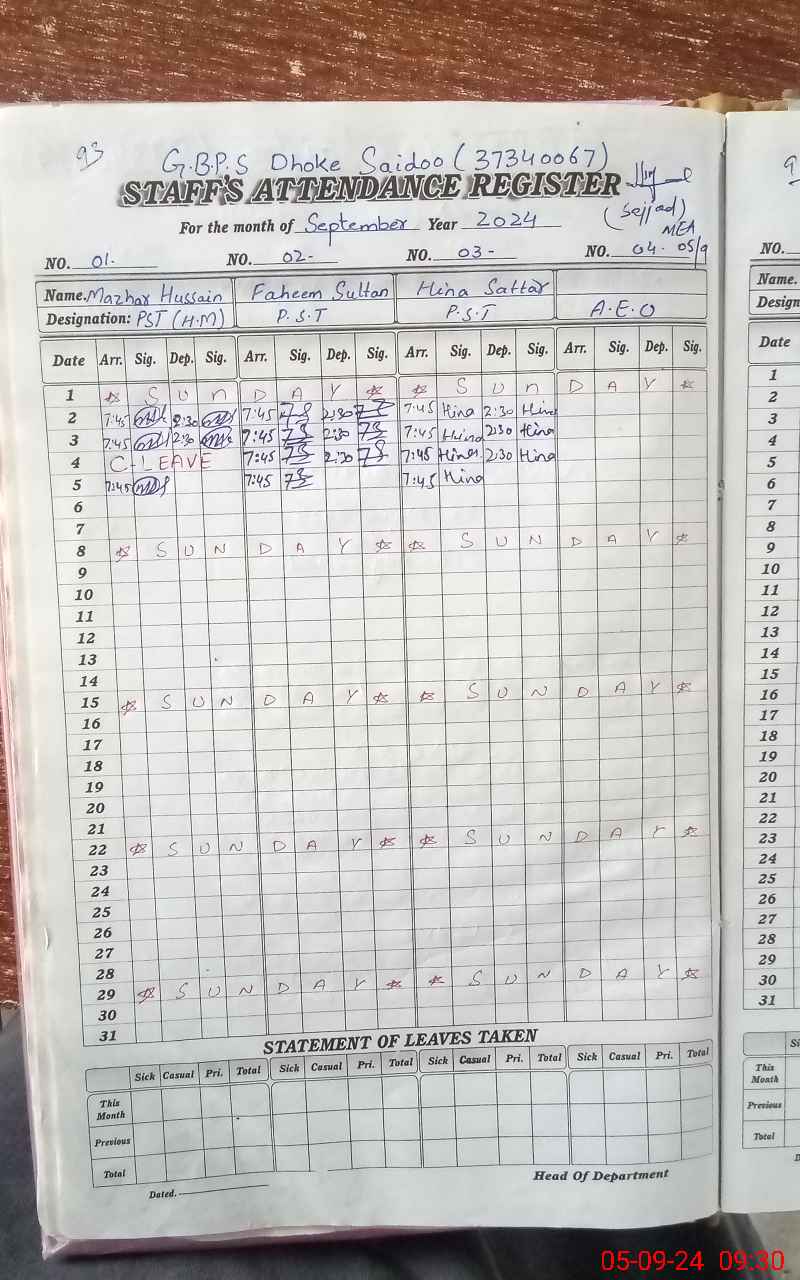 93 G.B.P.S Dhoke Saidoo (37340067)
STAFF'S ATTENDANCE REGISTER
(Sejjad)
For the month of September Year 2024 MEA
NO. 01. NO. 02- NO. 03- NO. 04. 05/9
Name. Mazhar Hussain Faheem Sultan Hina Sattar
Designation: PST (H.M) P.S.T P.S.T A.E.O
Date Arr. Sig. Dep. Sig. Arr. Sig. Dep. Sig. Arr. Sig. Dep. Sig. Arr. Sig. Dep. Sig.
1 S U N D A Y S U N D A Y
2 7:45 2:30 7:45 2:30 7:45 Hina 2:30 Hina
3 7:45 2:30 7:45 2:30 7:45 Hina 2:30 Hina
4 C-LEAVE 7:45 2:30 7:45 Hina 2:30 Hina
5 7:45 7:45 7:45 Hina
6
7
8 S U N D A Y S U N D A Y
9
10
11
12
13
14
15 S U N D A Y S U N D A Y
16
17
18
19
20
21
22 S U N D A Y S U N D A Y
23
24
25
26
27
28
29 S U N D A Y S U N D A Y
30
31
STATEMENT OF LEAVES TAKEN
Sick Casual Pri. Total Sick Casual Pri. Total Sick Casual Pri. Total Sick Casual Pri. Total
This Month
Previous
Total
Dated. Head Of Department
9
NO.
Name.
Design
Date
1
2
3
4
5
6
7
8
9
10
11
12
13
14
15
16
17
18
19
20
21
22
23
24
25
26
27
28
29
30
31
This Month
Previous
Total
05-09-24 09:30